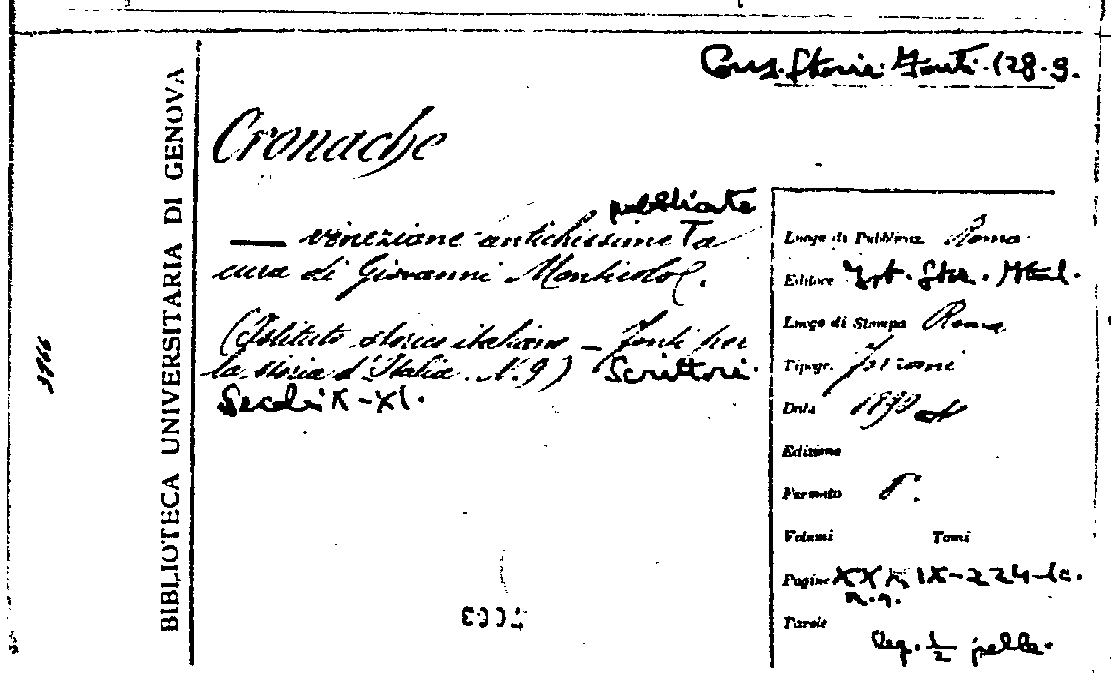 Cons. Storia. Fonti. 128. 9.
BIBLIOTECA UNIVERSITARIA DI GENOVA
3966
Cronache
pubblicate
— veneziane antichissime a
cura di Giovanni Monticolo.
(Istituto storico italiano – Fonti per
la storia d'Italia. N. 9) Scrittori.
Secoli X-XI.
Luogo di Pubblicaz. Roma
Editore Ist. Stor. Ital.
Luogo di Stampa Roma
Tipogr. Forzani
Data 1890
Edizione
Formato 8°.
Volumi Tomi
Pagine XXXIX-224-1c.
n.n.
Tavole
Leg. 1/2 pelle.